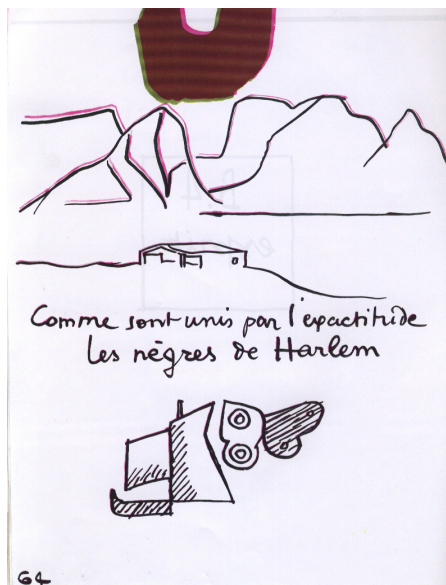 Comme sont unis par l'exactitude
les nègres de Harlem
64